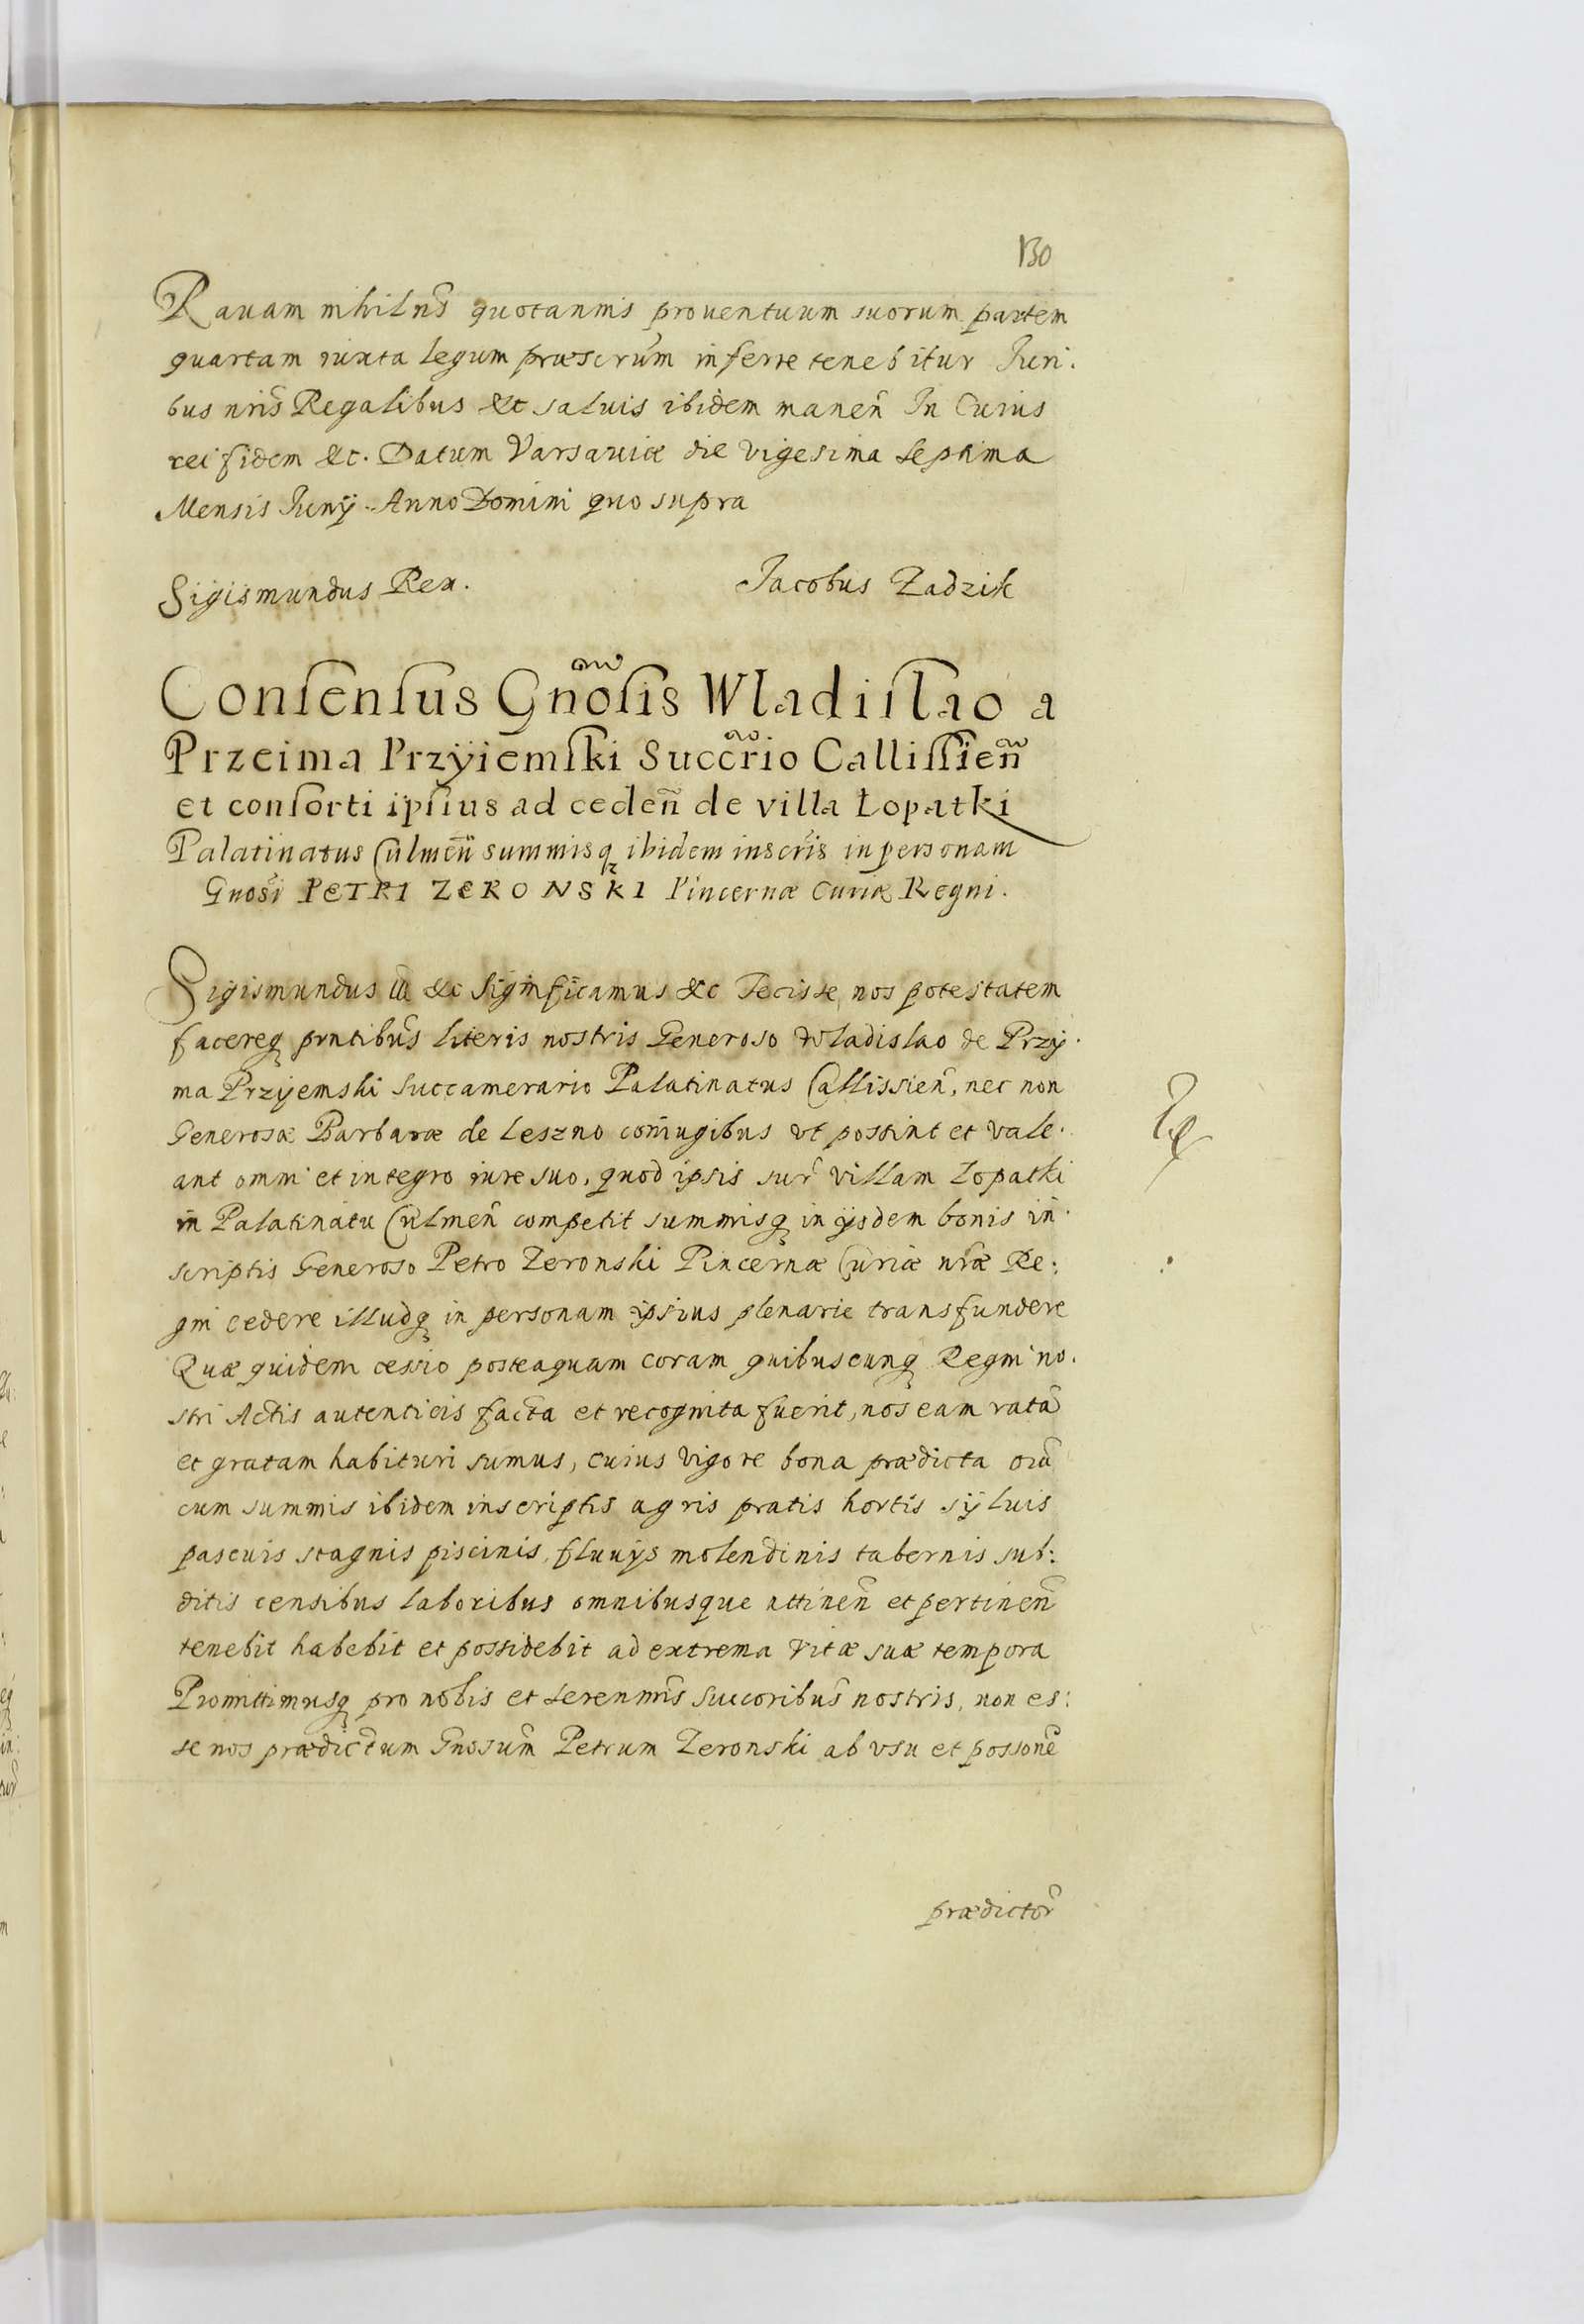 130
Rauam nihiln̄s quotannis prouentuum suorum partem
quartam iuxta legum præscrūm inferre tenebitur Juri.
bus nr̄is Regalibus &c saluis ibidem manen̄ In Cuius
rei fidem &c. Datum Varsauiæ die vigesima septima
Mensis Junÿ. Anno Domini quo supra
Sigismundus Rex.
Jacobus Zadzik
Conſenſus Gn̄oſis Wladiſlao a
Przeima Przÿiemſki Succr̄io Calliſſien̄
et conſorti ipſius ad ceden̄ de villa Łopatki
Palatinatus Culmen̄ summisq ibidem inscr̄is in personam
Gnosi PETRI ZERONSKI Pincernæ Curiæ Regni.
Sigismundus III &c Significamus &c Fecisse nos potestatem
facereq pntibus literis nostris Generoso Wladislao de Przÿ.
ma Przyemski Succamerario Palatinatus Callissien̄, nec non
Generosæ Barbaræ de Leszno coniugibus vt possint et vale.
ant omni et integro iure suo, quod ipsis sup̄ villam Lopatki
in Palatinatu Culmen̄ competit summisq in ijsdem bonis in.
scriptis Generoso Petro Zeronski Pincernæ Curiæ nr̄æ Re.
gni cedere illudq in personam ipsius plenarie transfundere
Quæ quidem cessio posteaquam coram quibuscunq Regni no.
stri Actis autenticis facta et recognita fuerit, nos eam ratā
et gratam habituri sumus, cuius vigore bona prædicta oīa
cum summis ibidem inscriptis agris pratis hortis sÿluis
pascuis stagnis piscinis, fluuÿs molendinis tabernis sub:
ditis censibus laboribus omnibusque attinen̄ et pertinen̄
tenebit habebit et possidebit ad extrema vitæ suæ tempora
Promittimusq pro nobis et seren̄mis Succoribus nostris, non es:
se nos prædictum Gnosum̄ Petrum Zeronski ab vsu et posson̄e
prædictor̄